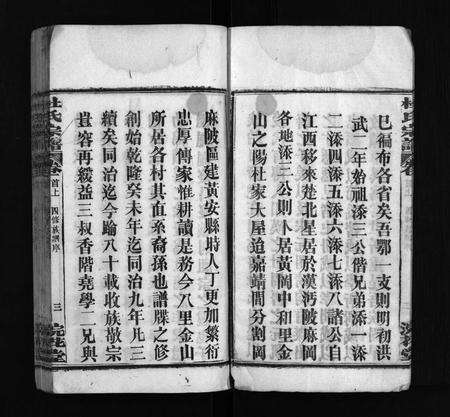 已徧布各省矣吾鄂一支則明初洪
武二年始祖添三公偕兄弟添一添
二添四添五添六添七添八諸公自
江西移來楚北星居於漢沔陂麻岡
各地添三公則卜居黃岡中和里金
山之陽杜家大屋迨嘉靖間分割岡
杜氏宗譜
卷首上
四修族譜序
三
麻陂區建黃安縣時人丁更加繁衍
忠厚傳家惟耕讀是務今八里金山
所居各村其直系裔孫也譜牒之修
創始乾隆癸未年迄同治九年凡三
續矣同治迄今踰八十載收族敬宗
豈容再緩益三叔香階堯學二兄與